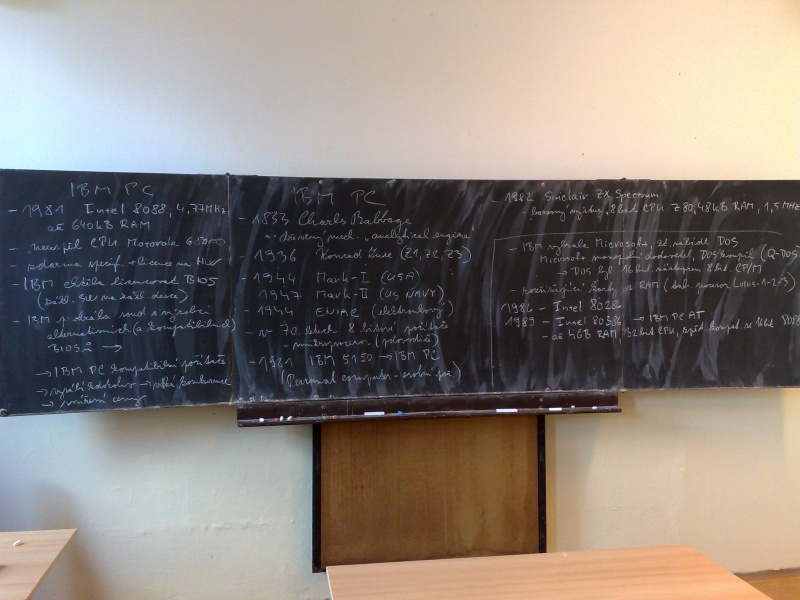 IBM PC
- 1981 Intel 8088, 4,77MHz
až 640kB RAM
- neuspěl CPU Motorola 68000
- zdarma specif. + licence na HW
- IBM chtěla licencovat BIOS
- IBM prohrála soud s výrobci
alternativních (a kompatibilních)
BIOSů →
→ IBM PC kompatibilní počítače
→ vyrábí kdokoliv → velká konkurence
→ snížení ceny
IBM PC
- 1833 Charles Babbage
- dřevěný mech. "analytical engine
- 1936 Konrad Zuse (Z1, Z2, Z3)
- 1944 Mark-I (USA)
1947 Mark-II (US NAVY)
- 1944 ENIAC (elektronkový)
- v 70. letech 8 bitové počítače
- mikroprocesor (polovodiče)
- 1981 IBM 5150 → IBM PC
(Personal computer - osobní poč.)
- 1982 Sinclair ZX Spectrum
- barevný výstup, 8 bit CPU Z80, 48kB RAM, 1,5 MHz
- IBM vybrala Microsoft, DOS
Microsoft monopolní dodavatel, DOS koupil (Q-DOS)
→ DOS byl 16 bit. nástupcem 8 bit. CP/M
- rozšiřující karty, RAM (tab. procesor Lotus 1-2-3)
1986 - Intel 80286 → IBM PC AT
1985 - Intel 80386
- až 4GB RAM, 32 bit CPU, zpět. kompat. se 16 bit